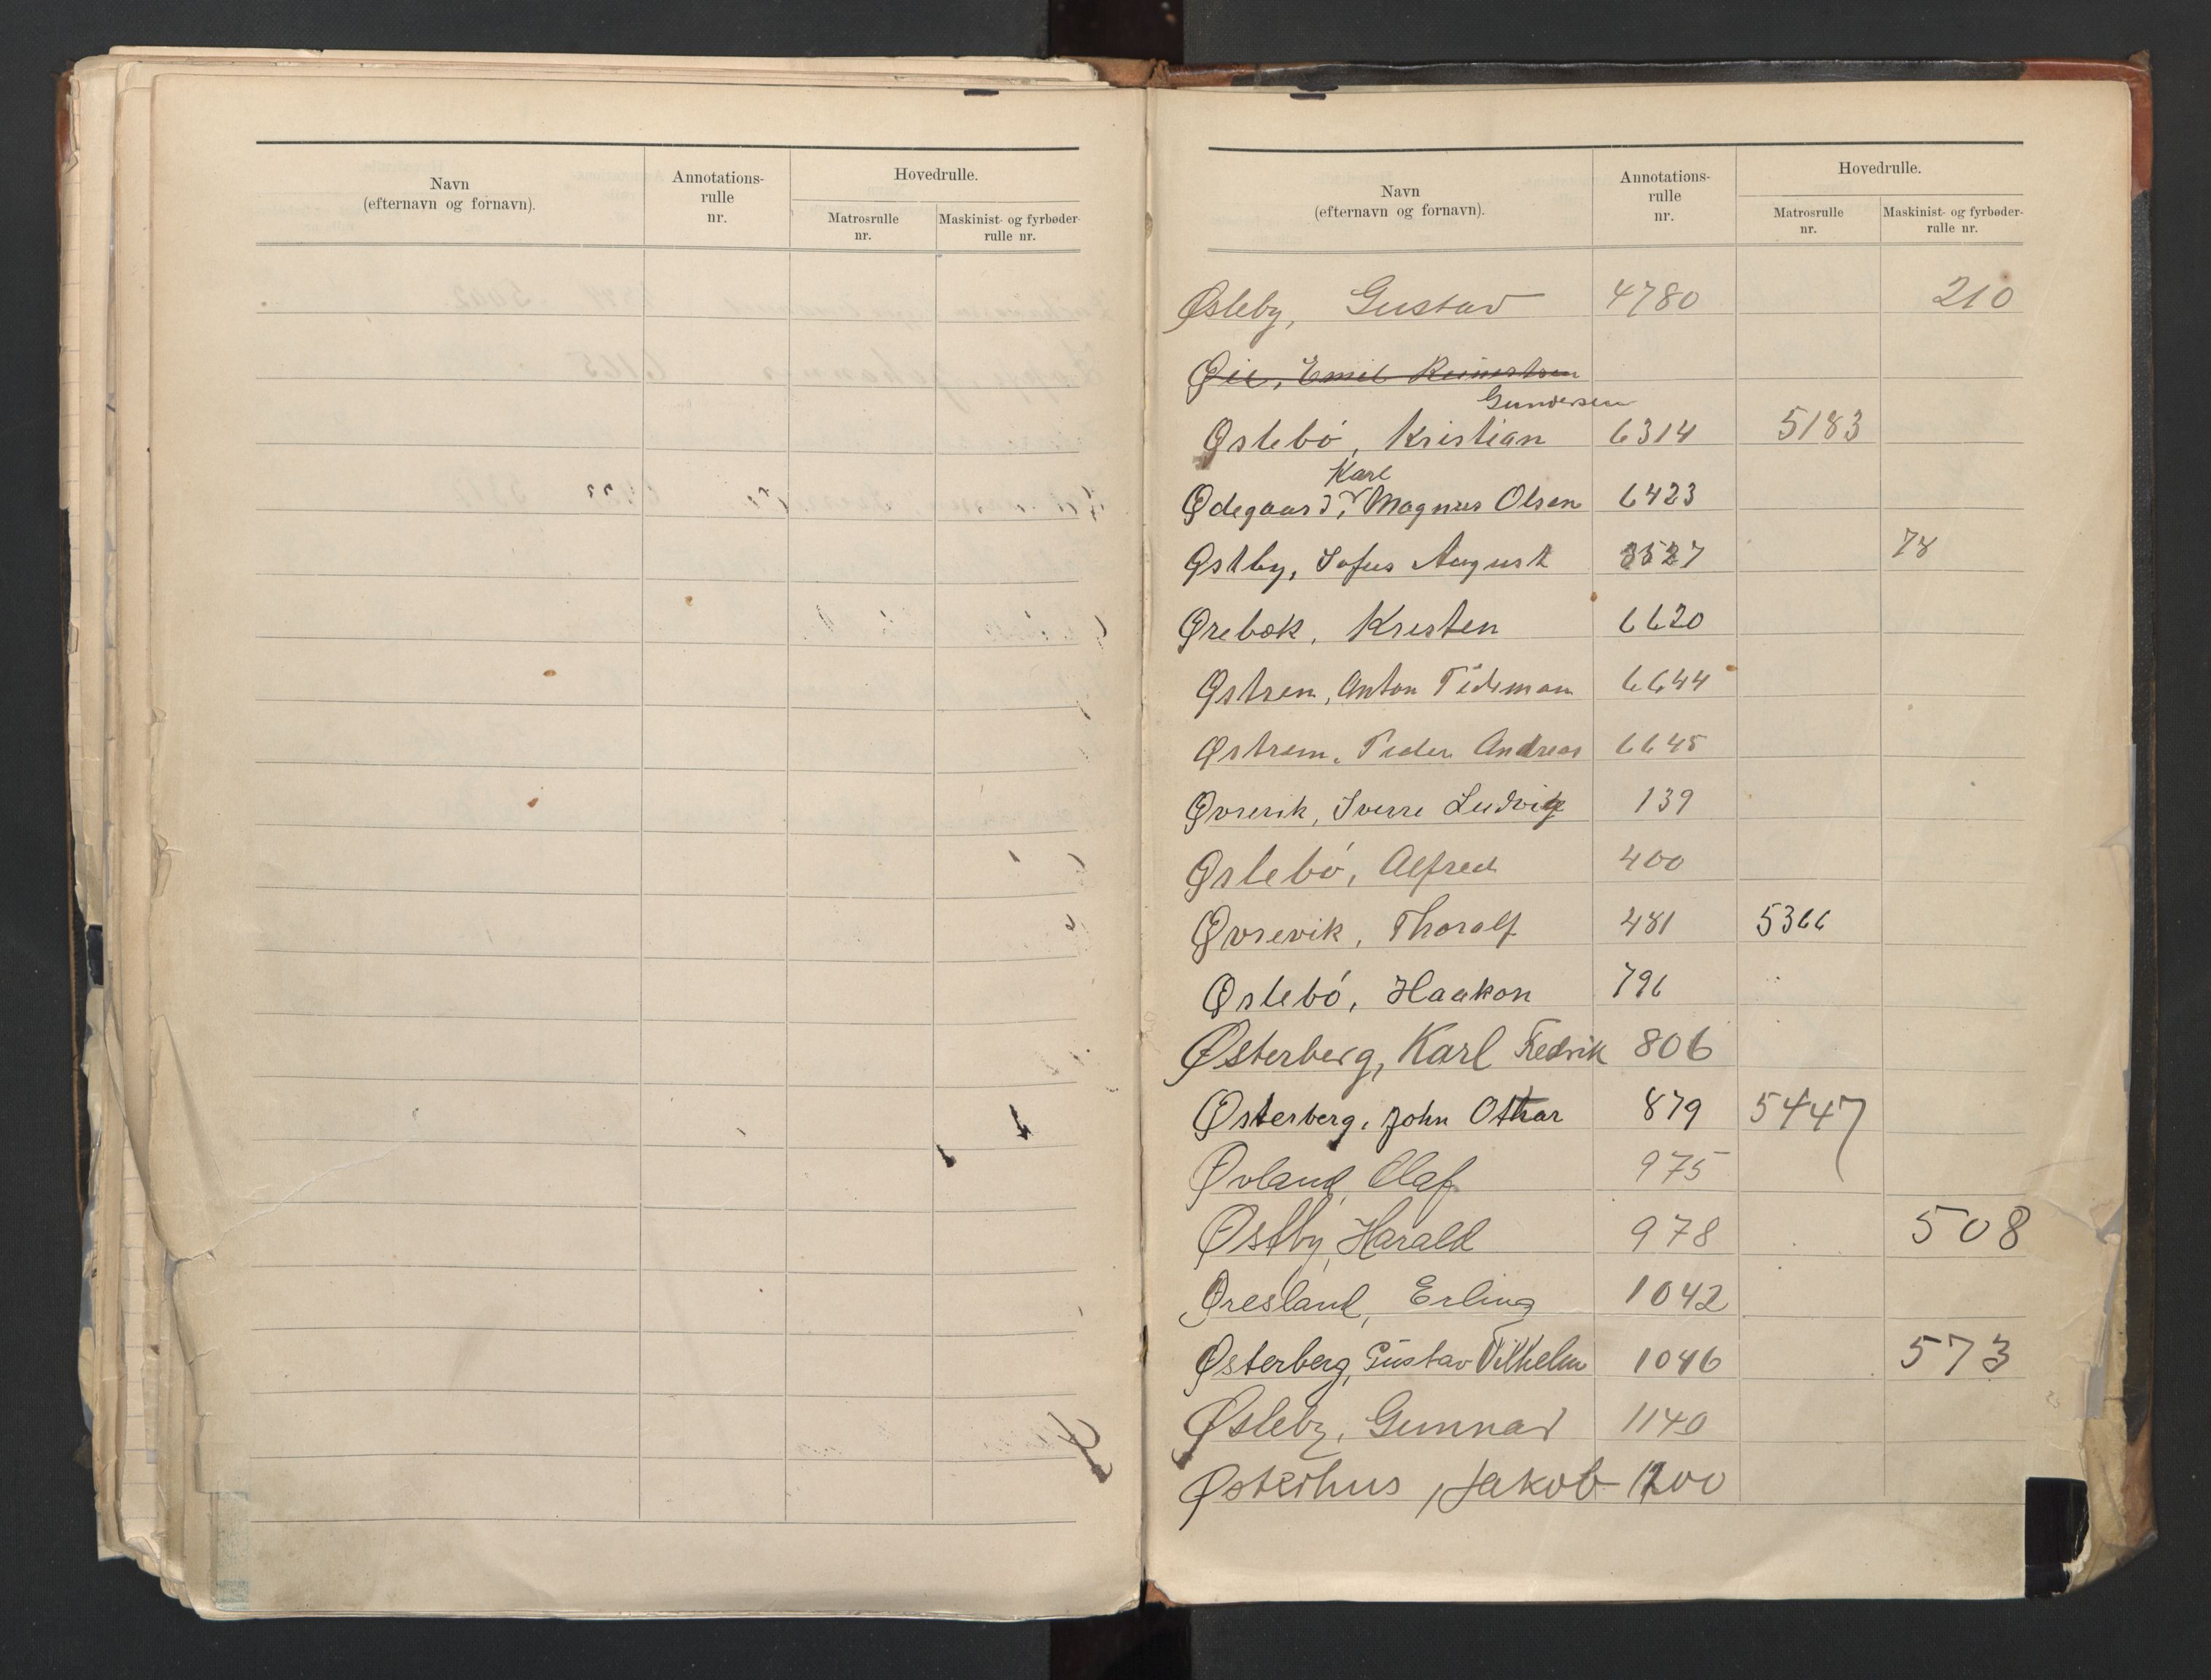 Navn
(efternavn og fornavn).
Annotations-
rulle
nr.
Hovedrulle.
Matrosrulle
nr.
Maskinist- og fyrbøder-
rulle nr.
Navn
(efternavn og fornavn).
Annotations-
rulle
nr.
Hovedrulle.
Matrosrulle
nr.
Maskinist- og fyrbøder-
rulle nr.
Østeby, Gustav 4780 210
Øie, Emil
Gundersen
Østebø, Kristian 6314 5183
Karl
Ødegaard, Magnus Olsen 6423
Østby, Sofus August 3527 78
Ørebæk, Kristen 6620
Østrem, Anton Tideman 6644
Østrem, Peder Andreas 6645
Øvrevik, Sverre Ludvig 139
Østebø, Alfred 400
Øvrevik, Thoralf 481 5366
Østebø, Haakon 796
Østerberg, Karl Fredrik 806
Østerberg, John Othar 879 5447
Øvland, Olaf 975
Østby, Harald 978 508
Øresland, Erling 1042
Østerberg, Gustav Vilhelm 1046 573
Østeby, Gunnar 1140
Østerhus, Jakob 1200